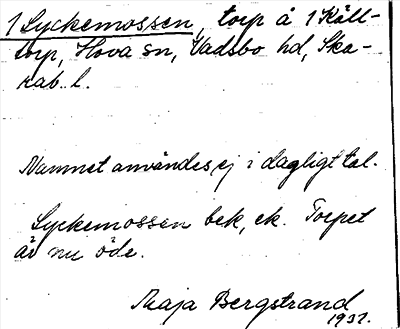 1 Lyckemossen, torp å 1 Käll-
torp, Hova sn, Vadsbo hd, Ska-
rab. l.
Namnet användes ej i dagligt tal.
Lyckemossen bek, ek. Torpet
är nu öde.
Maja Bergstrand
1932.